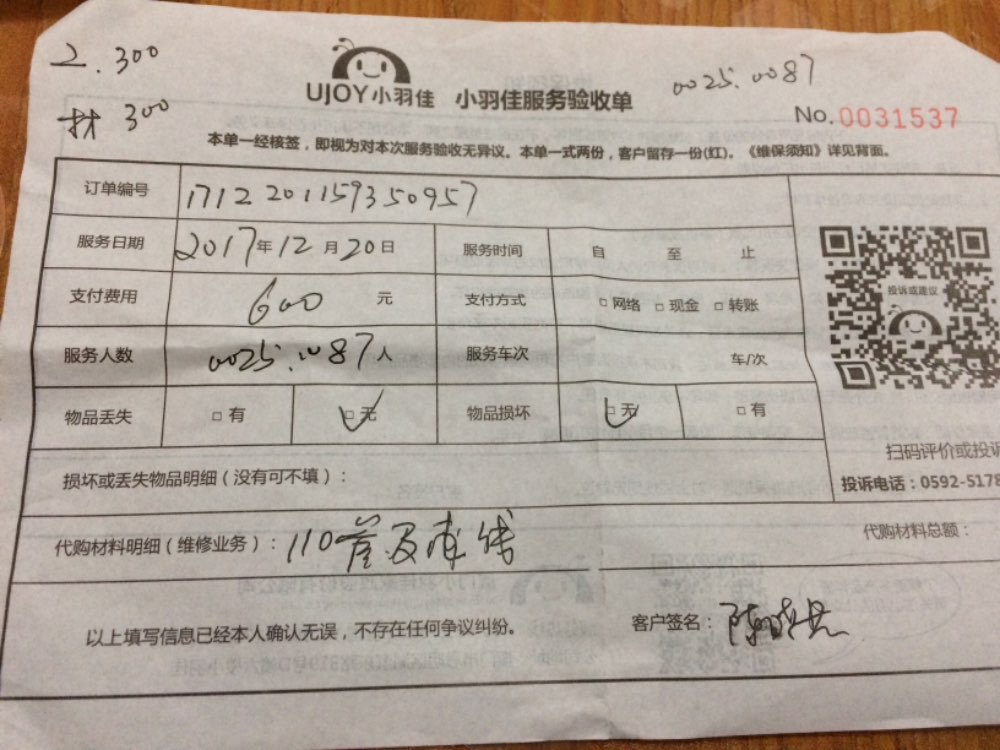 工.300
材 300
UJOY小羽佳 小羽佳服务验收单
0025.0087
No.0031537
本单一经核签,即视为对本次服务验收无异议。本单一式两份,客户留存一份(红)。《维保须知》详见背面。
订单编号 171220115935095​7
服务日期 2017年12月20日 服务时间 自 至 止
支付费用 600 元 支付方式 □网络 □现金 □转账
服务人数 0025.0087人 服务车次 车/次
物品丢失 □有 □无 物品损坏 □无 □有
投诉或建议
扫码评价或投诉
投诉电话:0592-5178
损坏或丢失物品明细(没有可不填):
代购材料明细(维修业务): 110管及
代购材料总额:
以上填写信息已经本人确认无误,不存在任何争议纠纷。
客户签名: 陈